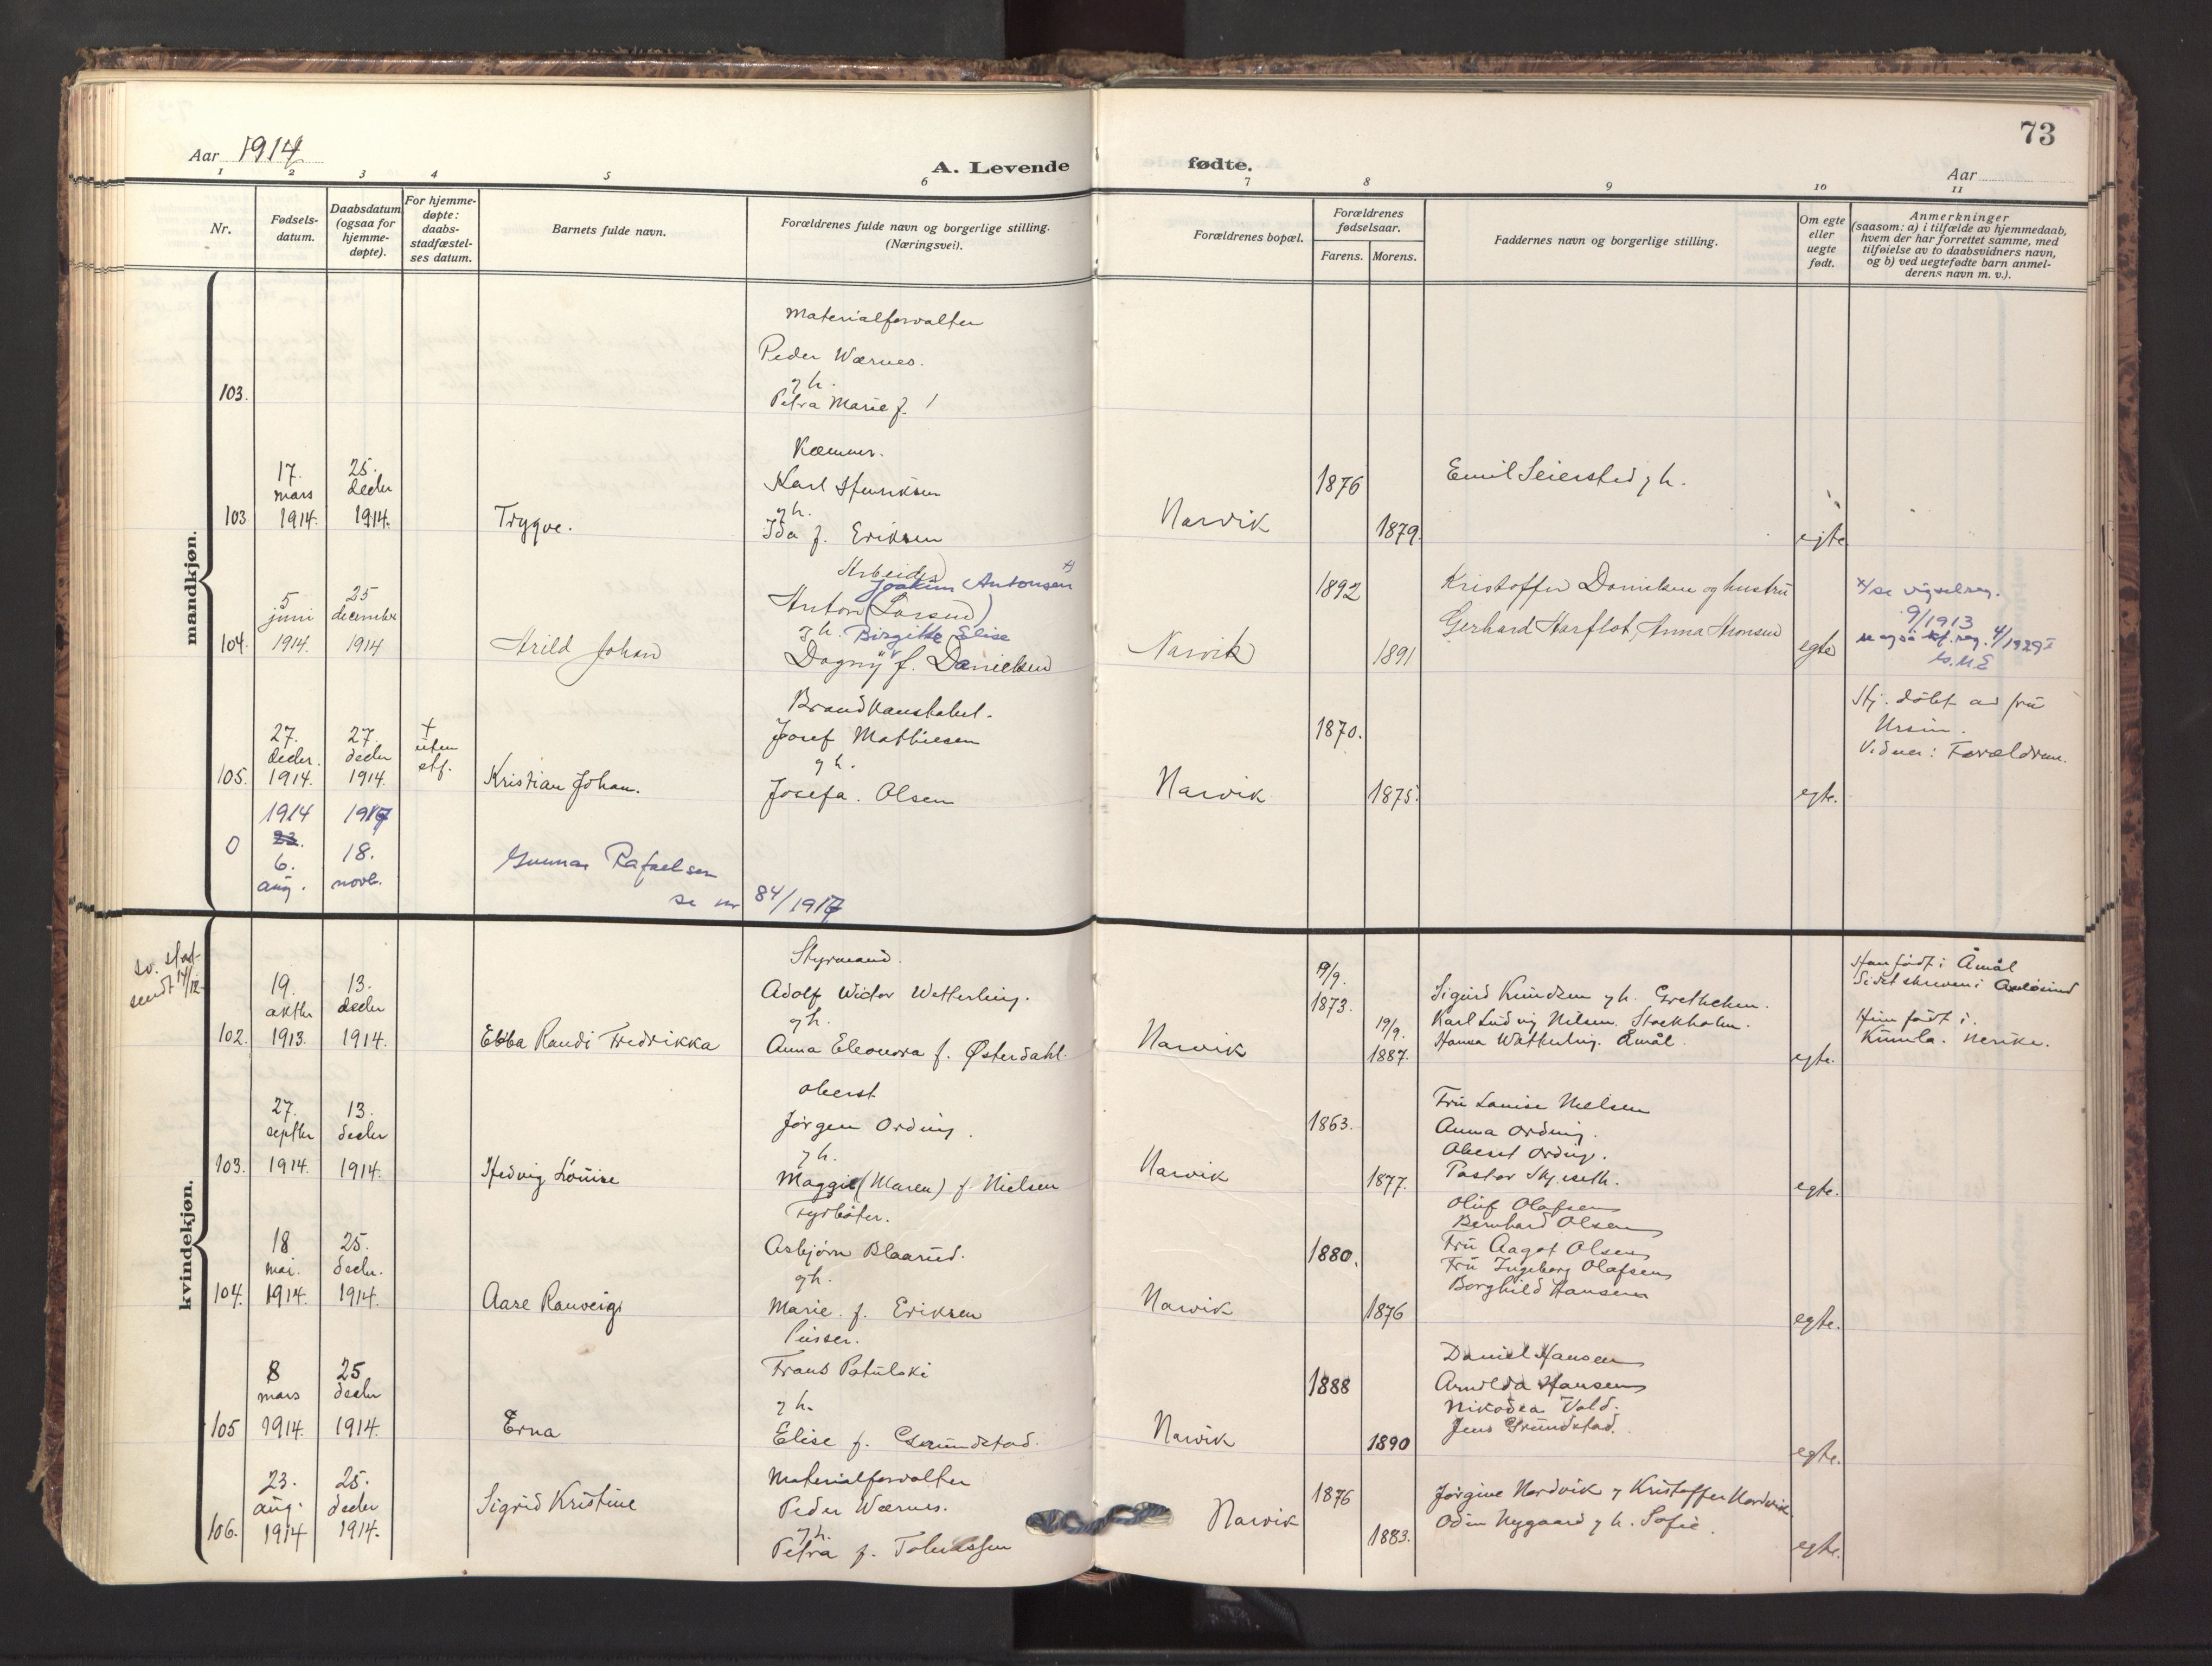 73
Aar 1914
A. Levende
fødte.
Aar
1 2 3 4 5 6 7 8 9 10 11
Nr.
Fødsels-
datum.
Daabsdatum
(ogsaa for
hjemme-
døpte).
For hjemme-
døpte:
daabs-
stadfæstel-
ses datum.
Barnets fulde navn.
Forældrenes fulde navn og borgerlige stilling.
(Næringsvei).
Forældrenes bopæl.
Forældrenes
fødselsaar.
Farens. Morens.
Faddernes navn og borgerlige stilling.
Om egte
eller
uegte
født.
Anmerkninger
(saasom: a) i tilfælde av hjemmedaab,
hvem der har forrettet samme, med
tilføielse av to daabsvidners navn,
og b) ved uegtefødte barn anmel-
derens navn m. v.).
mandkjøn.
103.
Materialforvalter
Peder Wærnes.
g h.
Petra Marie f.
103
17.
mars
1914.
25.
decbr
1914.
Trygve.
Kæmner.
Karl Henriksen
g h.
Ida f. Eriksen
Narvik
1876
1879.
Emil Seiersted g h.
egte
104.
5
juni
1914.
25
december
1914
Arild Johan
Arbeider
Joakim Antonsen x)
Anton (Larsen)
g h. Birgitte Elise
Dagny f. Danielsen
Narvik
1892
1891
Kristoffer Danielsen og hustru
Gerhard Harflot, Anna Aronsen
egte
x/ se vigselreg.
9/1913
se også kf. reg. 4/1929
105.
27.
decbr.
1914.
27.
decbr
1914.
+
uten
stf.
Kristian Johan.
Brandkonstabel.
Josef Mathiesen
g h.
Josefa. Olsen
Narvik
1870.
1875.
egte.
Hj. døbt av fru
Ursin.
Vidner: Forældrene.
0
1914
23.
6.
aug.
1917
18.
novb.
Gunnar Rafaelsen
se nr 84/1917
kvindekjøn.
sv. stat-
sendt 14/12
102.
19.
oktbr
1913.
13.
decbr
1914.
Ebba Randi Fredrikka
Styrmand.
Adolf Widor Wetterling.
g h.
Anna Eleonora f. Østerdahl.
Narvik
19/9.
1873.
19/9.
1887.
Sigurd Knudsen g h. Grethchen.
Karl Ludvig Nilsen. Stockholm.
Hanna Wetterling. Åmål.
egte.
Han født i Åmål
Hun født i
Kumla. Nerike.
103.
27.
septbr
1914.
13.
decbr
1914.
Hedvig Louise
Oberst
Jørgen Ording.
g h.
Maggie (Maren) f. Nielsen
Narvik
1863.
1877.
Fru Louise Nielsen
Anna Ording.
Oberst Ording.
Pastor Skjeseth.
egte.
104.
18
mai.
1914.
25.
decbr.
1914.
Aase Ranveig
Fyrbøter.
Asbjørn Blaarud.
g h.
Marie f. Eriksen
Narvik
1880.
1876
Oluf Olafsen
Bernhard Olsen
Fru Aagot Olsen
Fru Ingeborg Olafsen
Borghild Hansen
egte.
105
8
mars
1914.
25
decbr
1914.
Erna
Pusser.
Frans Patulski
g h.
Elise f. Grundstad.
Narvik
1888
1890
Daniel Hansen
Arnolda Hansen
Nikodea Vold.
Jens Grundstad.
egte.
106.
23.
aug.
1914
25.
decbr
1914.
Sigrid Kristine
Materialforvalter
Peder Wærnes.
g h.
Petra f. Tobiassen
Narvik
1876
1883.
Jørgine Nordvik g Kristoffer Nordvik
Odin Nygaard g h. Sofie.
egte.